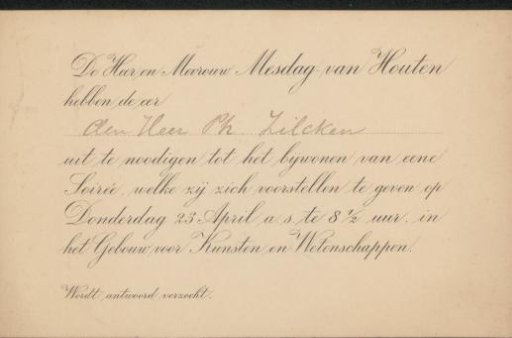 De Heer en Mevrouw Mesdag-van Houten
hebben de eer
den Heer Ph Zilcken
uit te noodigen tot het bijwonen van eene
Soirée, welke zij zich voorstellen te geven op
Donderdag 23 April a s te 8 ½ uur. in
het Gebouw voor Kunsten en Wetenschappen.
Wordt antwoord verzocht.